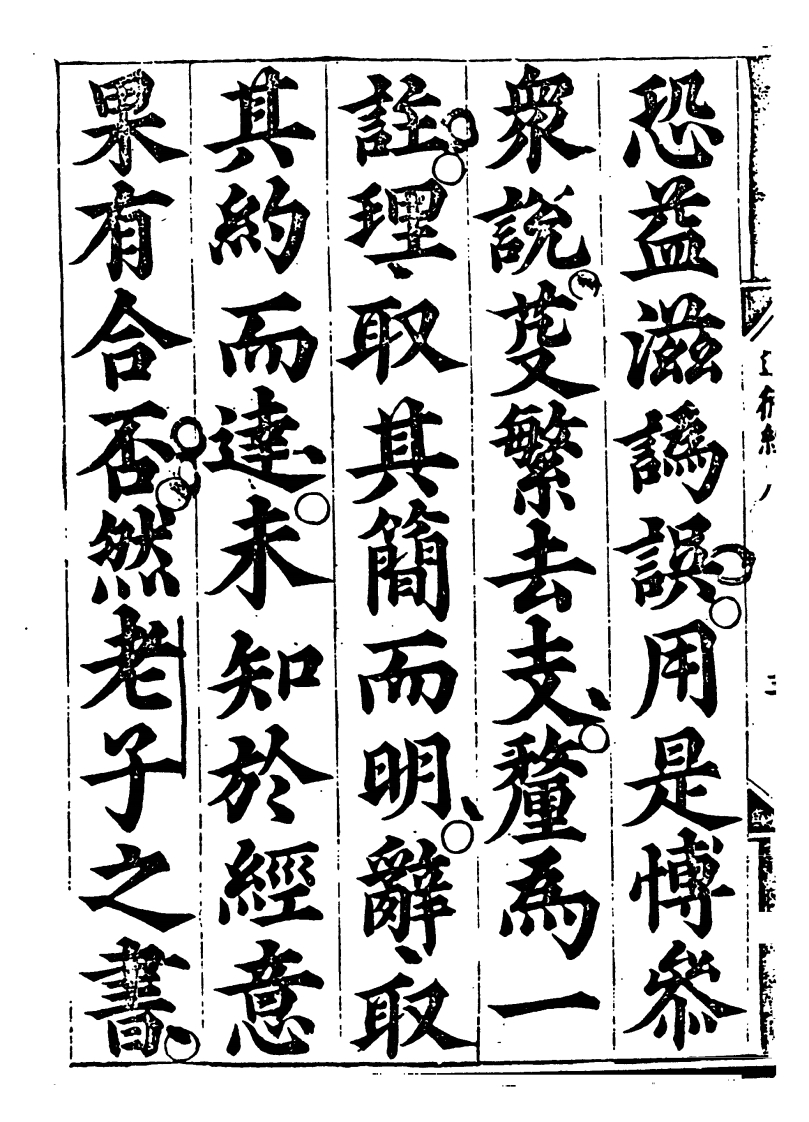 恐益滋譌誤用是博叅
衆說芟繁去支釐爲一
註理取其簡而明辭取
其約而達未知於經意
果有合否然老子之書